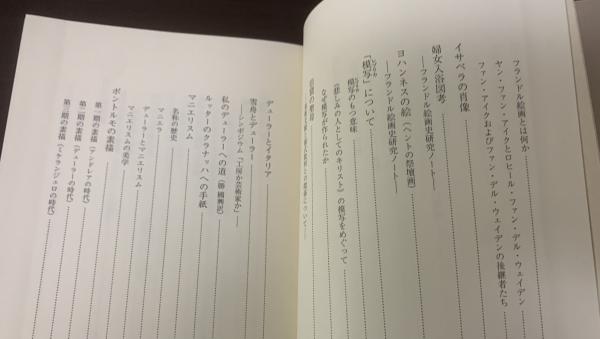 フランドル絵画とは何か
ヤン・ファン・アイクとロヒール・ファン・デル・ウェイデン
ファン・アイクおよびファン・デル・ウェイデンの後継者たち
イサベラの肖像
婦女入浴図考
―フランドル絵画史研究ノート―
ヨハンネスの絵（ヘントの祭壇画）
―フランドル絵画史研究ノート―
「模写」について
模写のもつ意味
《悲しみの人としてのキリスト》の模写をめぐって
なぜ模写が作られたか
デューラーとイタリア
雪舟とデューラー
―シンポジウム「工房か芸術家か」―
私のデューラーへの道（勝 國興訳）
ルッターのクラナッハへの手紙
マニエリスム
名称の歴史
マニエラ
デューラーとマニエリスム
マニエリスムの美学
ポントルモの素描
第一期の素描（アンドレアの時代）
第二期の素描（デューラーの時代）
第三期の素描（ミケランジェロの時代）